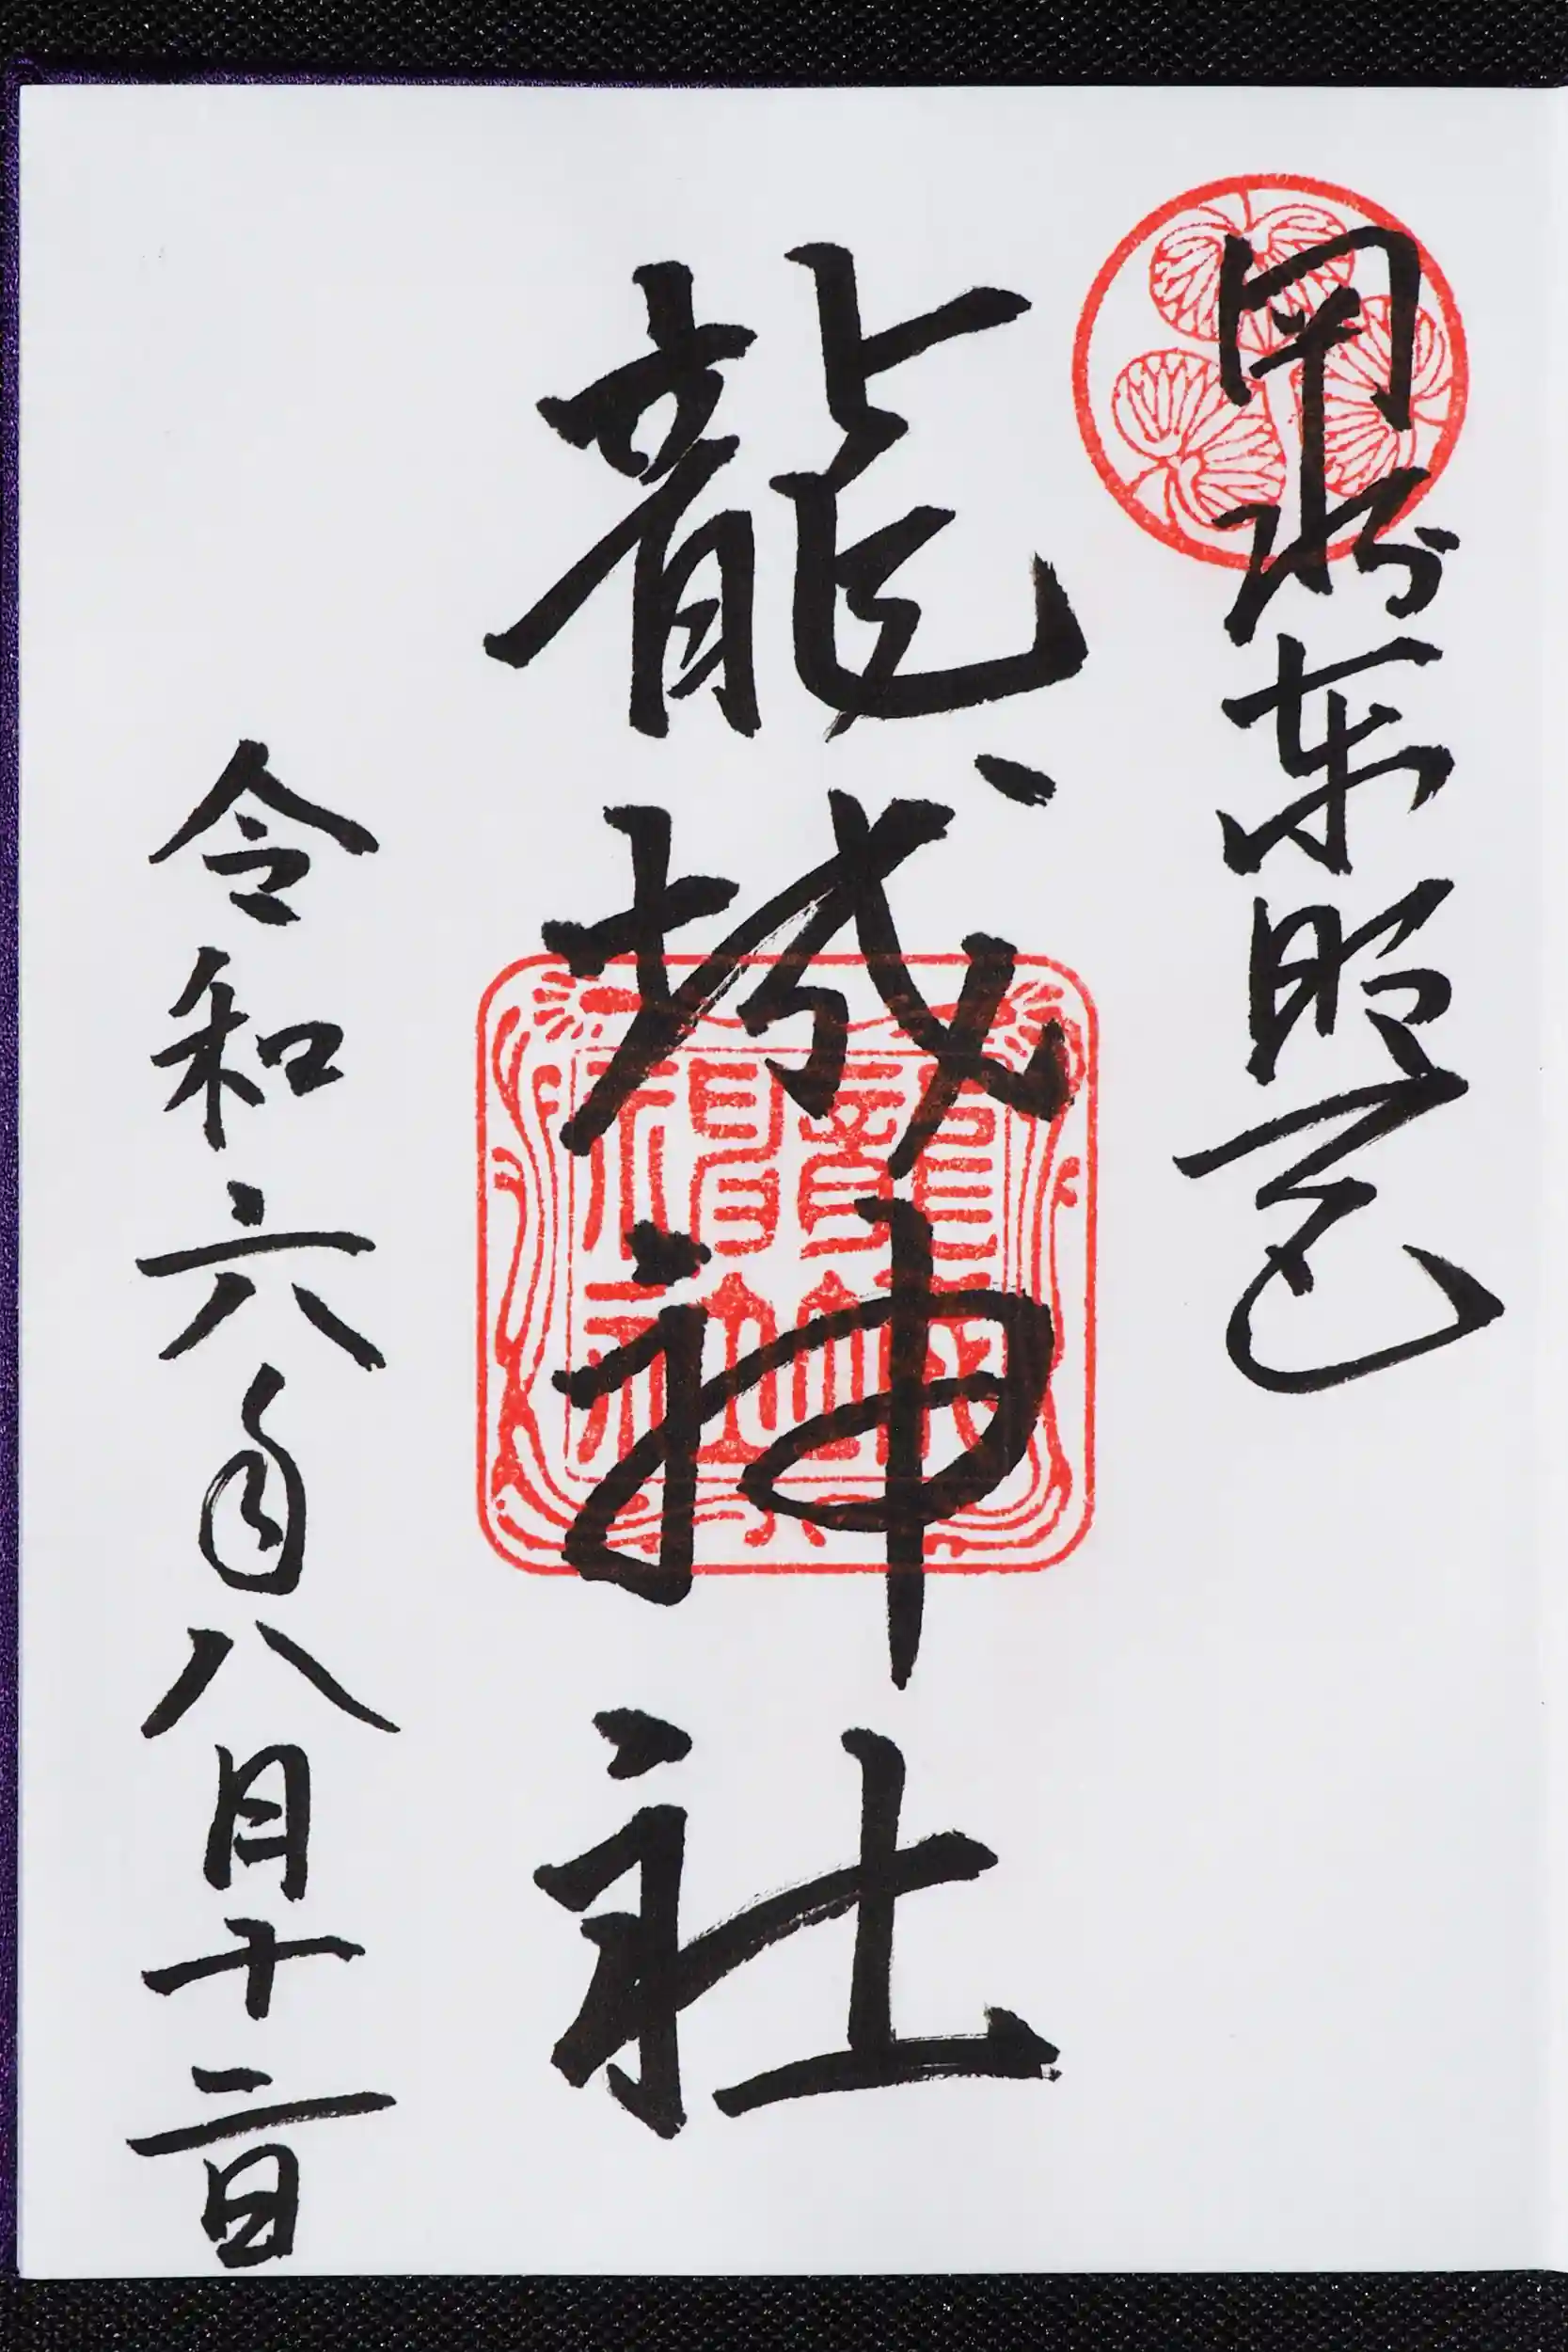 岡崎東照宮
龍城神社
龍城神社
令和六年八月十二日